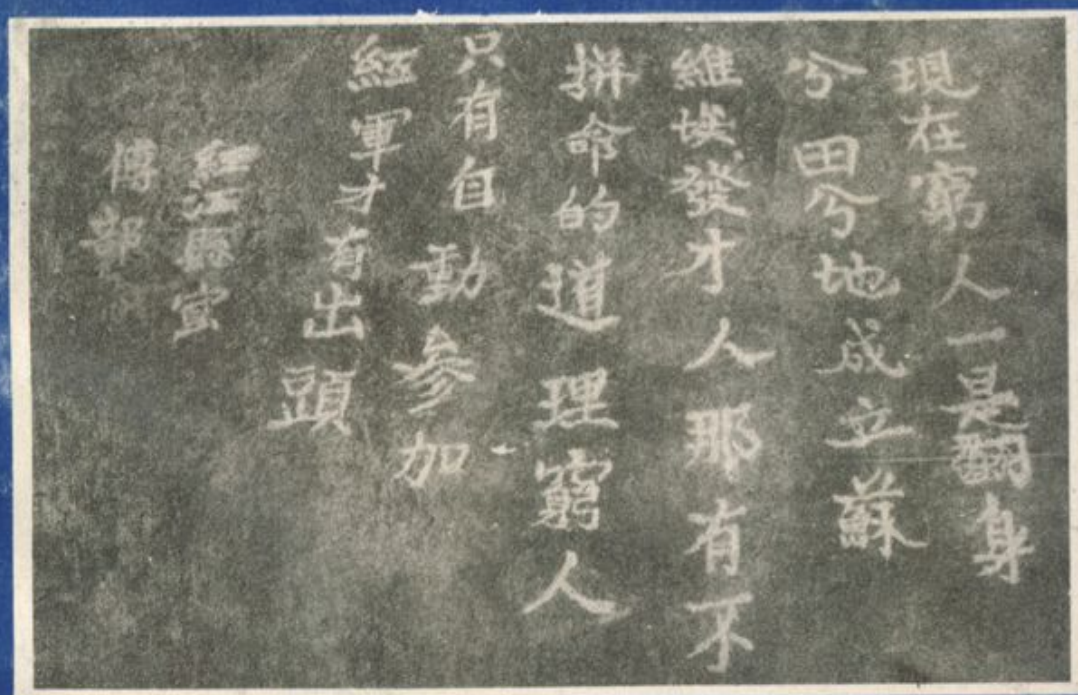 現在窮人一是翻身
分田分地成立蘇
維埃發才人那有不
拼命的道理窮人
只有自動參加
紅軍才有出頭
紅江縣宣
傳部